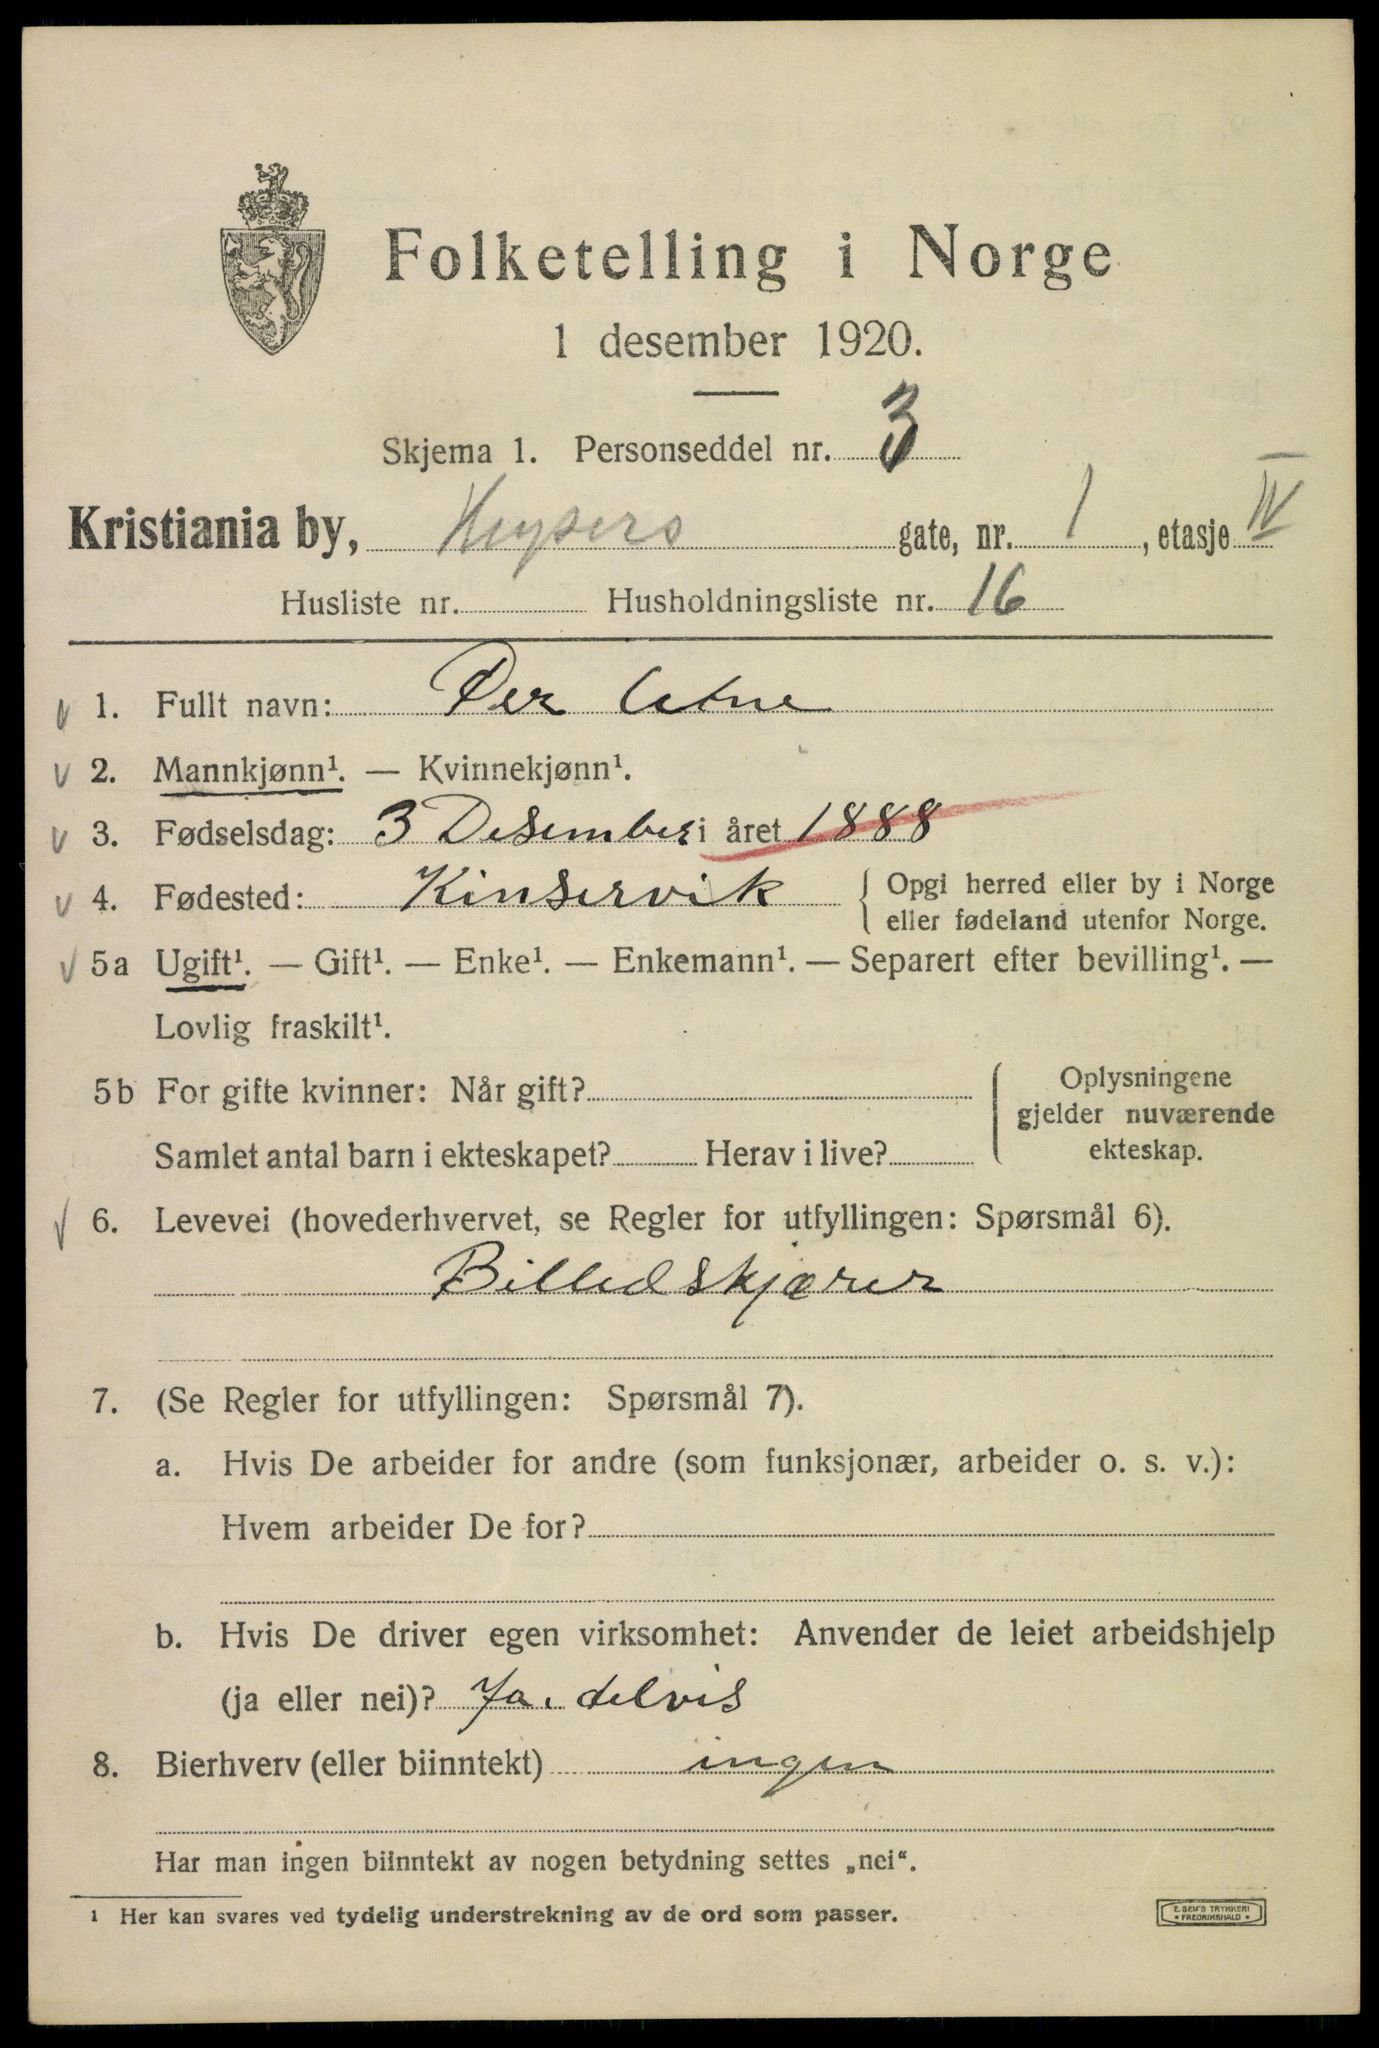 Folketelling i Norge
1 desember 1920.
Skjema 1. Personseddel nr. 3
Kristiania by, Keysers gate, nr. 1, etasje IV
Husliste nr. Husholdningsliste nr. 16
1. Fullt navn: Per
2. Mannkjønn¹. — Kvinnekjønn¹.
3. Fødselsdag: 3 Desember i året 1888
4. Fødested: Kinservik { Opgi herred eller by i Norge
eller fødeland utenfor Norge.
5a Ugift¹. — Gift¹. — Enke¹. — Enkemann¹. — Separert efter bevilling¹. —
Lovlig fraskilt¹.
5b For gifte kvinner: Når gift?
Samlet antal barn i ekteskapet? Herav i live?
Oplysningene
gjelder nuværende
ekteskap.
6. Levevei (hovederhvervet, se Regler for utfyllingen: Spørsmål 6).
Billedskjærer
7. (Se Regler for utfyllingen: Spørsmål 7).
a. Hvis De arbeider for andre (som funksjonær, arbeider o. s. v.):
Hvem arbeider De for?
b. Hvis De driver egen virksomhet: Anvender de leiet arbeidshjelp
(ja eller nei)? Ja. delvis
8. Bierhverv (eller biinntekt) ingen
Har man ingen biinntekt av nogen betydning settes „nei“.
¹ Her kan svares ved tydelig understrekning av de ord som passer.
E. SEM'S TRYKKERI
• FREDRIKSHALD •